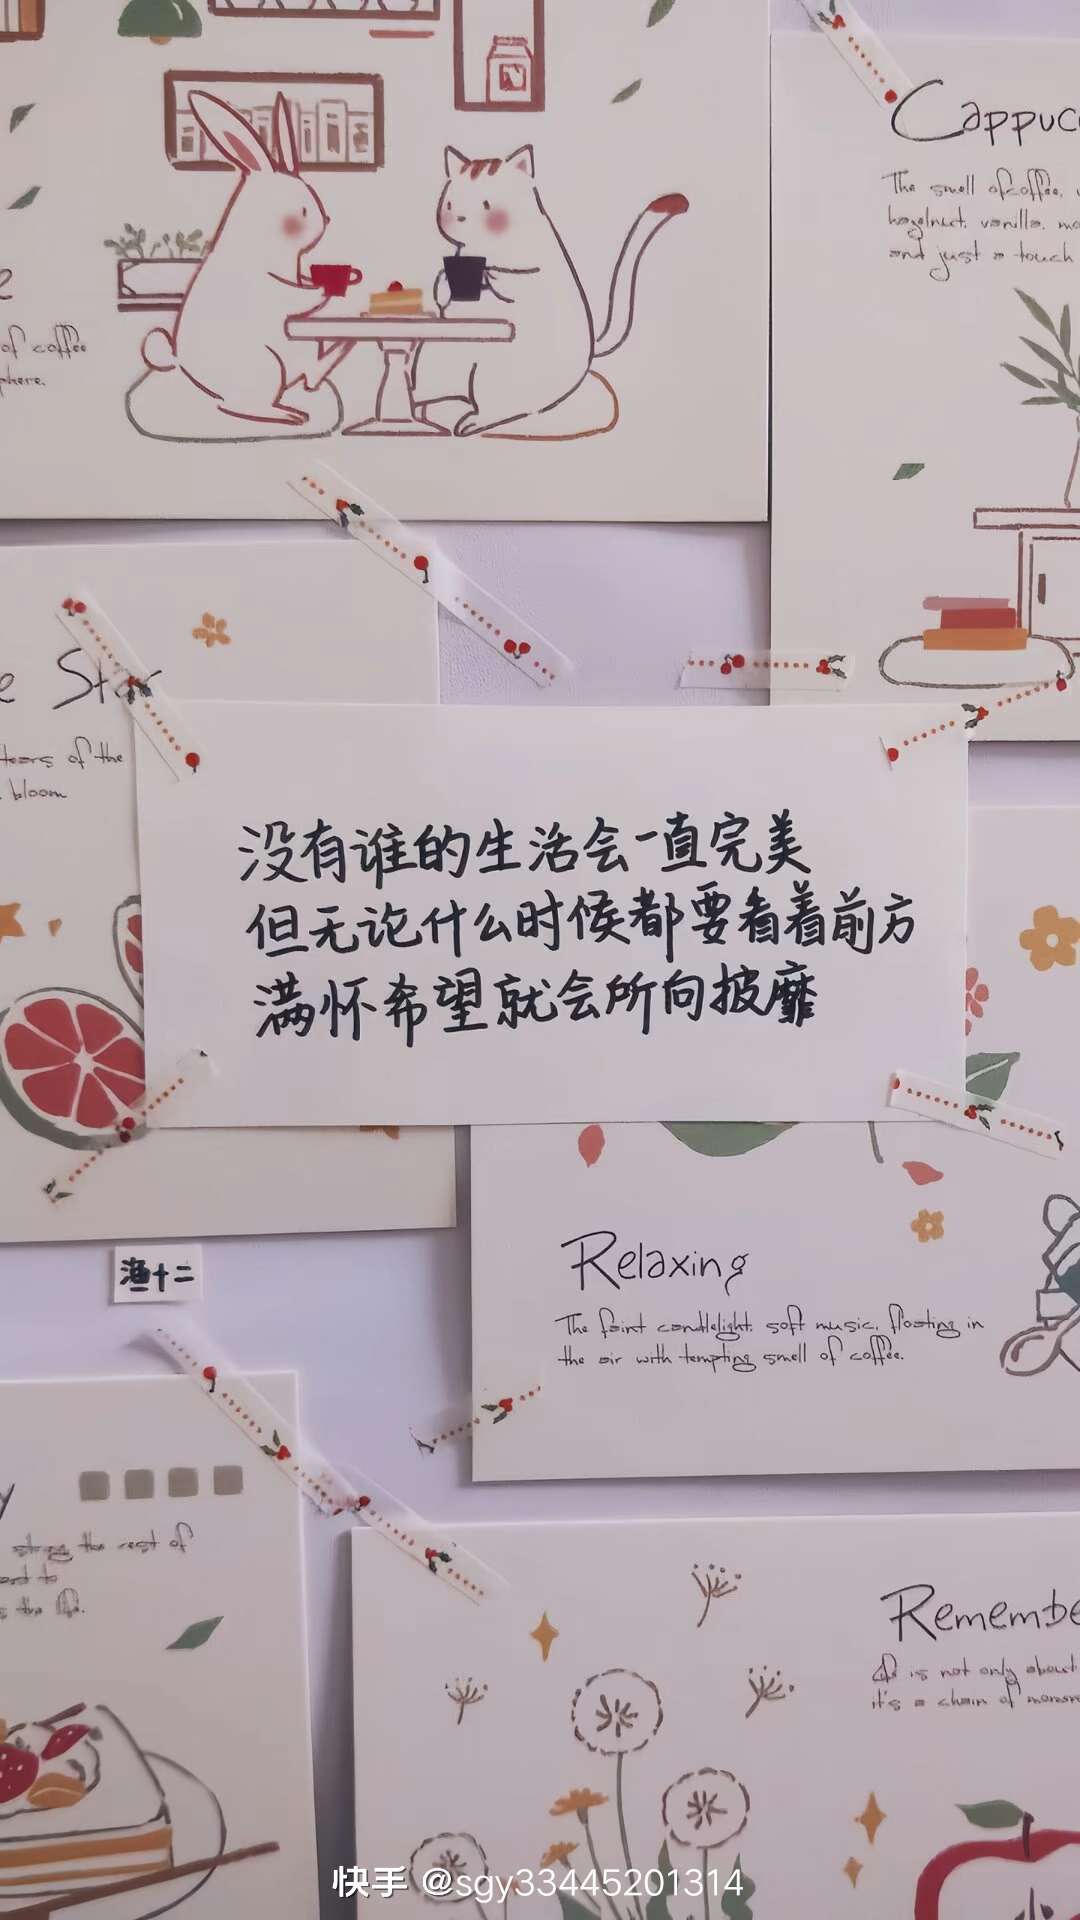 Cappuc
The smell of coffee,
hazelnut, vanilla,
and just a touch
of coffee
phere.
e Star
tears of the
bloom
没有谁的生活会一直完美
但无论什么时候都要看着前方
满怀希望就会所向披靡
Relaxing
The faint candlelight, soft music, floating in
the air with tempting smell of coffee.
渔十二
y
the rest of
to
the
Remembe
is not only about
it's a chain of
快手 @sgy33445201314